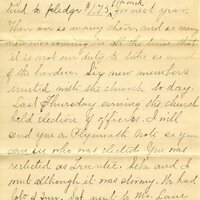 tried to pledge $1.73 for next year.
There are so many there, and so many
new ones coming in all the time that
it is not our duty to take so much
of the burden. Six new members
united with the church to day.
Last Thursday evening the church
held election of officers. I will
send you a Plymouth Note so you
can see who was elected. You was
reelected as Trustee. Seba and I
met although it was stormy. We had
lots of fun. Sat next to Mr. Lane